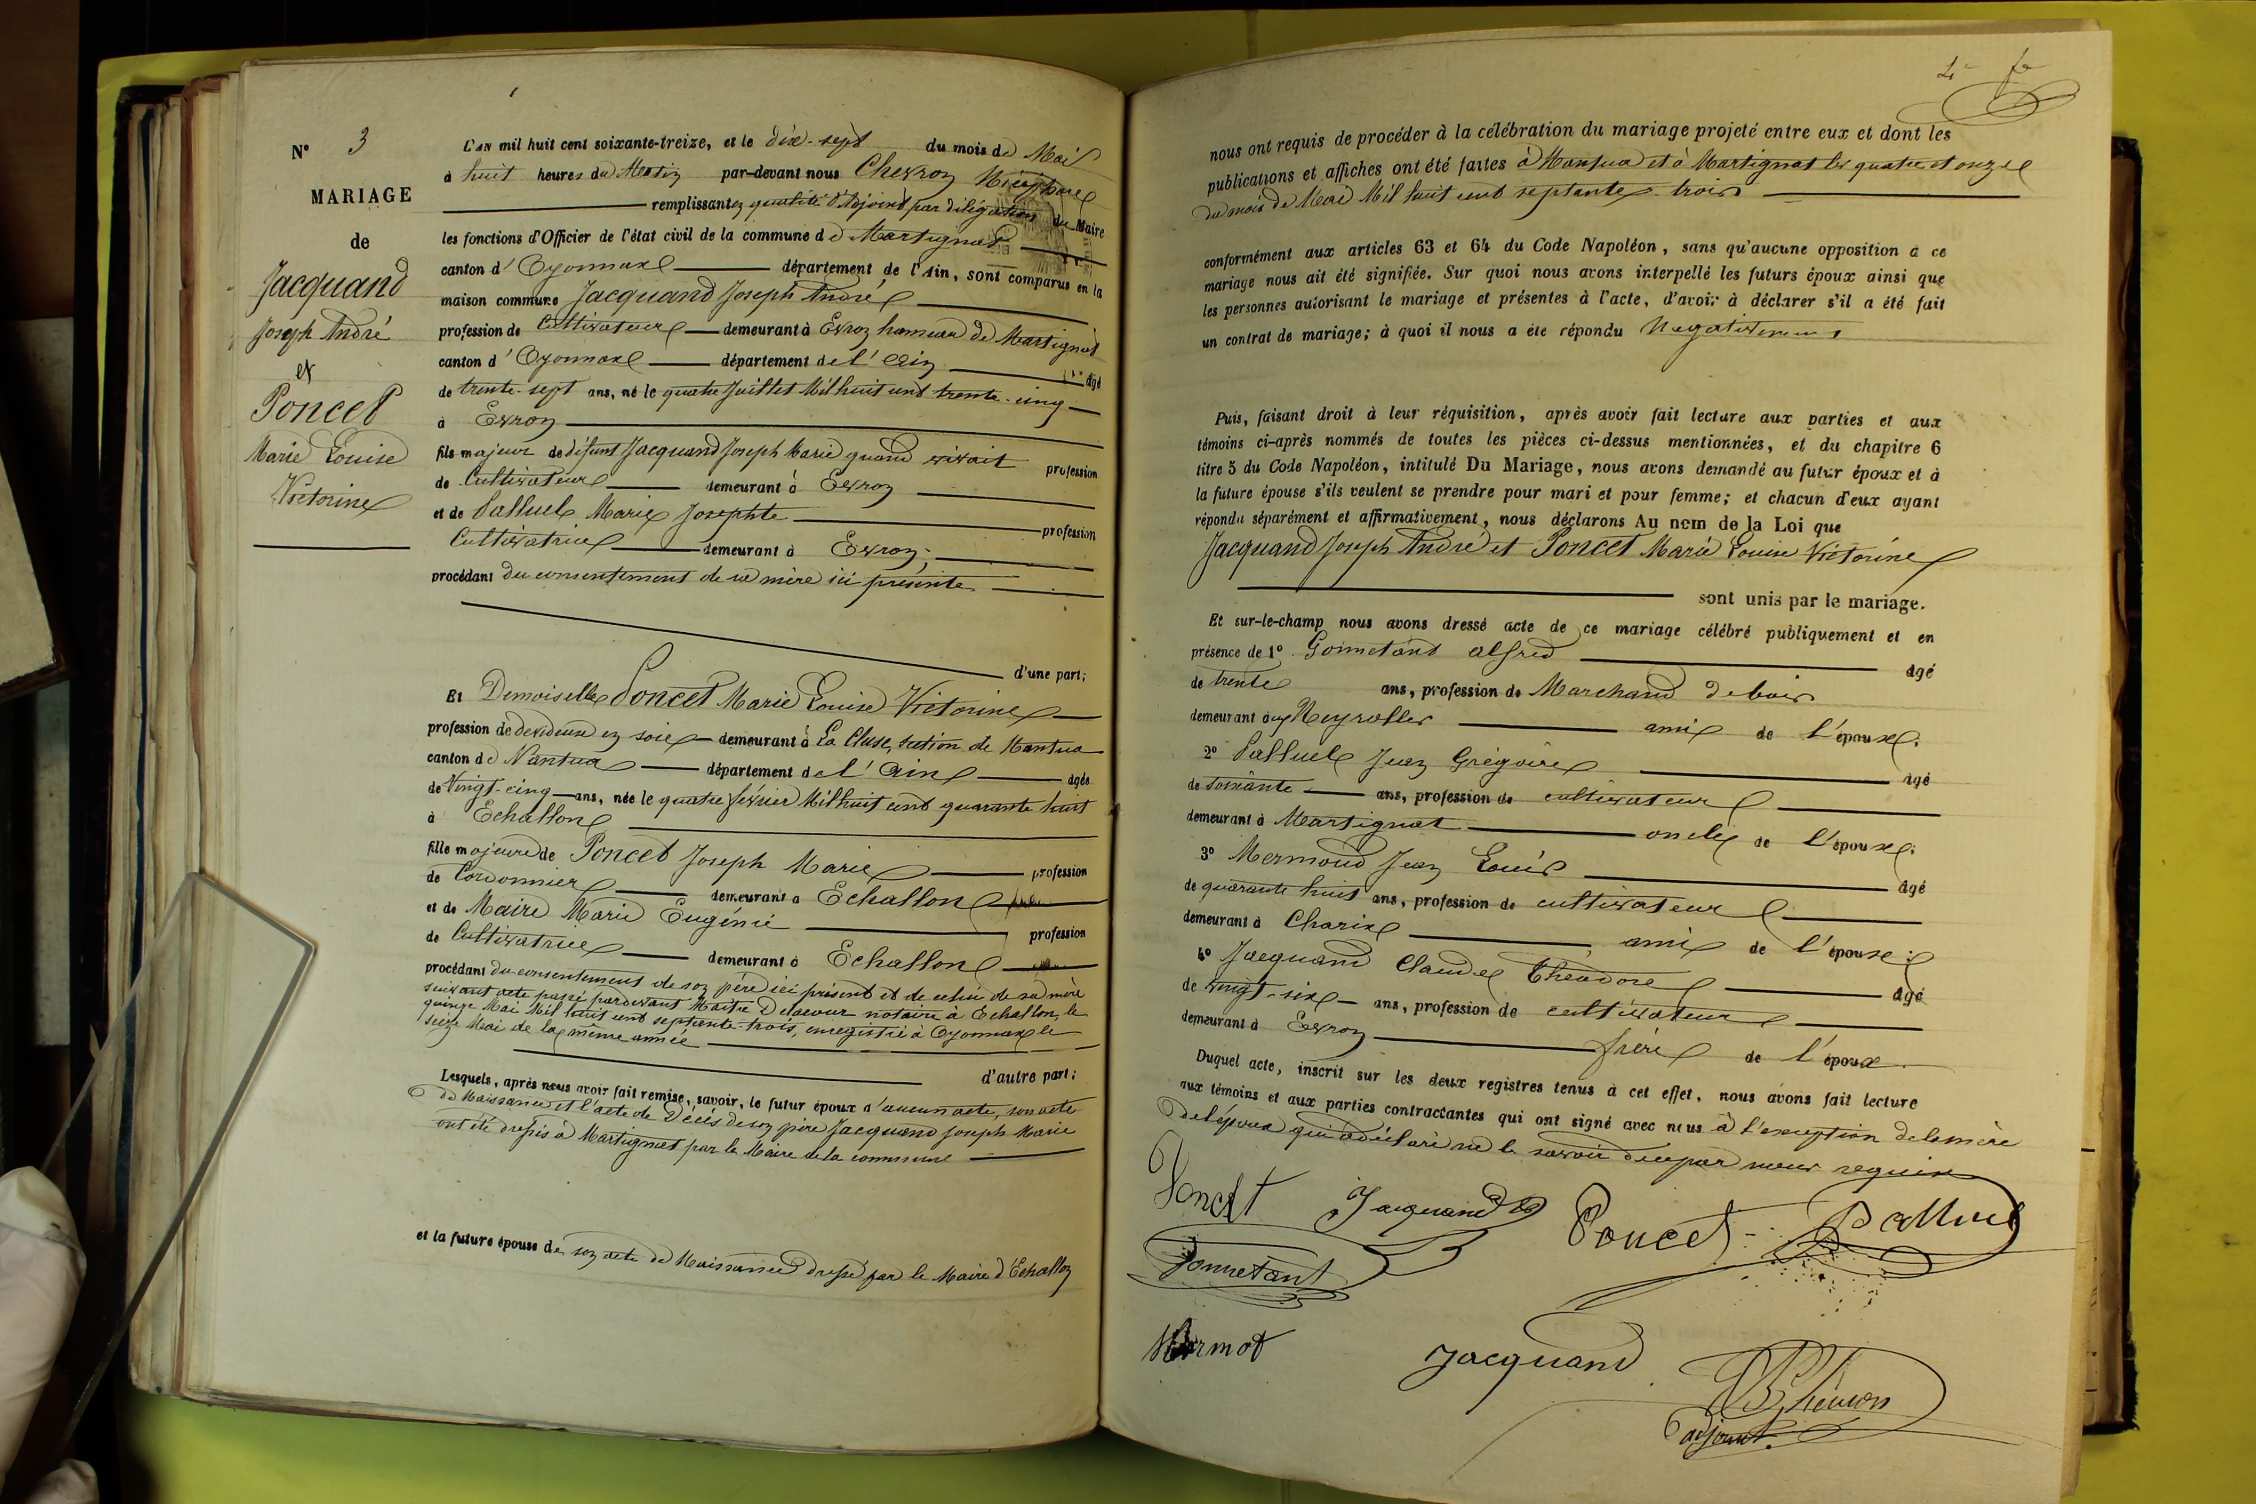 N° 3
MARIAGE
de
Jacquand
Joseph André
et
Poncet
Marie Louise
Victorine
L'AN mil huit cent soixante-treize, et le dix-sept du mois de Mai
à huit heures du Matin par-devant nous Chevron Nicéphore
remplissant en qualité d'Adjoint par délégation du Maire
les fonctions d'Officier de l'état civil de la commune de Martignat
canton d'Oyonnax département de l'Ain, sont comparus en la
maison commune Jacquand Joseph André
profession de Cultivateur demeurant à Evron hameau de Martignat
canton d'Oyonnax département de l'Ain âgé
de trente-sept ans, né le quatre Juillet Mil huit cent trente-cinq
à Evron
fils majeur de défunt Jacquand Joseph Marie quand vivait profession
de Cultivateur demeurant à Evron
et de Palluel Marie Josephte profession
Cultivatrice demeurant à Evron,
procédant du consentement de sa mère ici présente
d'une part;
Et Demoiselle Poncet Marie Louise Victorine
profession de devideuse en soie demeurant à La Cluse, section de Nantua
canton de Nantua département de l'Ain âgée
de Vingt-cinq ans, née le quatre février Mil huit cent quarante huit
à Echallon
fille majeure de Poncet Joseph Marie profession
de Cordonnier demeurant à Echallon
et de Maire Marie Eugénie profession
de Cultivatrice demeurant à Echallon
procédant du consentement de son père ici présent et de celui de sa mère
suivant acte passé pardevant Maître Delacour notaire à Echallon, le
quinze Mai Mil huit cent septante-trois, enregistré à Oyonnax le
seize Mai de la même année
d'autre part;
Lesquels, après nous avoir fait remise, savoir, le futur époux d'aucun acte, son acte
de Naissance et l'acte de Décès de son père Jacquand Joseph Marie
ont été dressés à Martignat par le Maire de la commune
et la future épouse de son acte de Naissance dressé par le Maire d'Echallon
nous ont requis de procéder à la célébration du mariage projeté entre eux et dont les
publications et affiches ont été faites à Nantua et à Martignat les quatre et onze
du mois de Mai Mil huit cent septante-trois
conformément aux articles 63 et 64 du Code Napoléon, sans qu'aucune opposition à ce
mariage nous ait été signifiée. Sur quoi nous avons interpellé les futurs époux ainsi que
les personnes autorisant le mariage et présentes à l'acte, d'avoir à déclarer s'il a été fait
un contrat de mariage; à quoi il nous a été répondu Négativement
Puis, faisant droit à leur réquisition, après avoir fait lecture aux parties et aux
témoins ci-après nommés de toutes les pièces ci-dessus mentionnées, et du chapitre 6
titre 5 du Code Napoléon, intitulé Du Mariage, nous avons demandé au futur époux et à
la future épouse s'ils veulent se prendre pour mari et pour femme; et chacun d'eux ayant
répondu séparément et affirmativement, nous déclarons Au nom de la Loi que
Jacquand Joseph André et Poncet Marie Louise Victorine
sont unis par le mariage.
Et sur-le-champ nous avons dressé acte de ce mariage célébré publiquement et en
présence de 1° Gonnetant alfred âgé
de trente ans, profession de Marchand de bois
demeurant aux Neyrolles ami de l'épouse.
2° Palluel Jean Grégoire âgé
de soixante ans, profession de cultivateur
demeurant à Martignat oncle de l'époux.
3° Mermoud Jean Louis âgé
de quarante huit ans, profession de cultivateur
demeurant à Charix ami de l'épouse;
4° Jacquand Claude Théodore âgé
de vingt-six ans, profession de cultivateur
demeurant à Evron frère de l'époux.
Duquel acte, inscrit sur les deux registres tenus à cet effet, nous avons fait lecture
aux témoins et aux parties contractantes qui ont signé avec nous à l'exception de la mère
de l'époux qui a déclaré ne le savoir de ce par nous requise
Poncet Jacquand Poncet Palluel
Gonnetant
Mermot Jacquand Chevron
adjoint